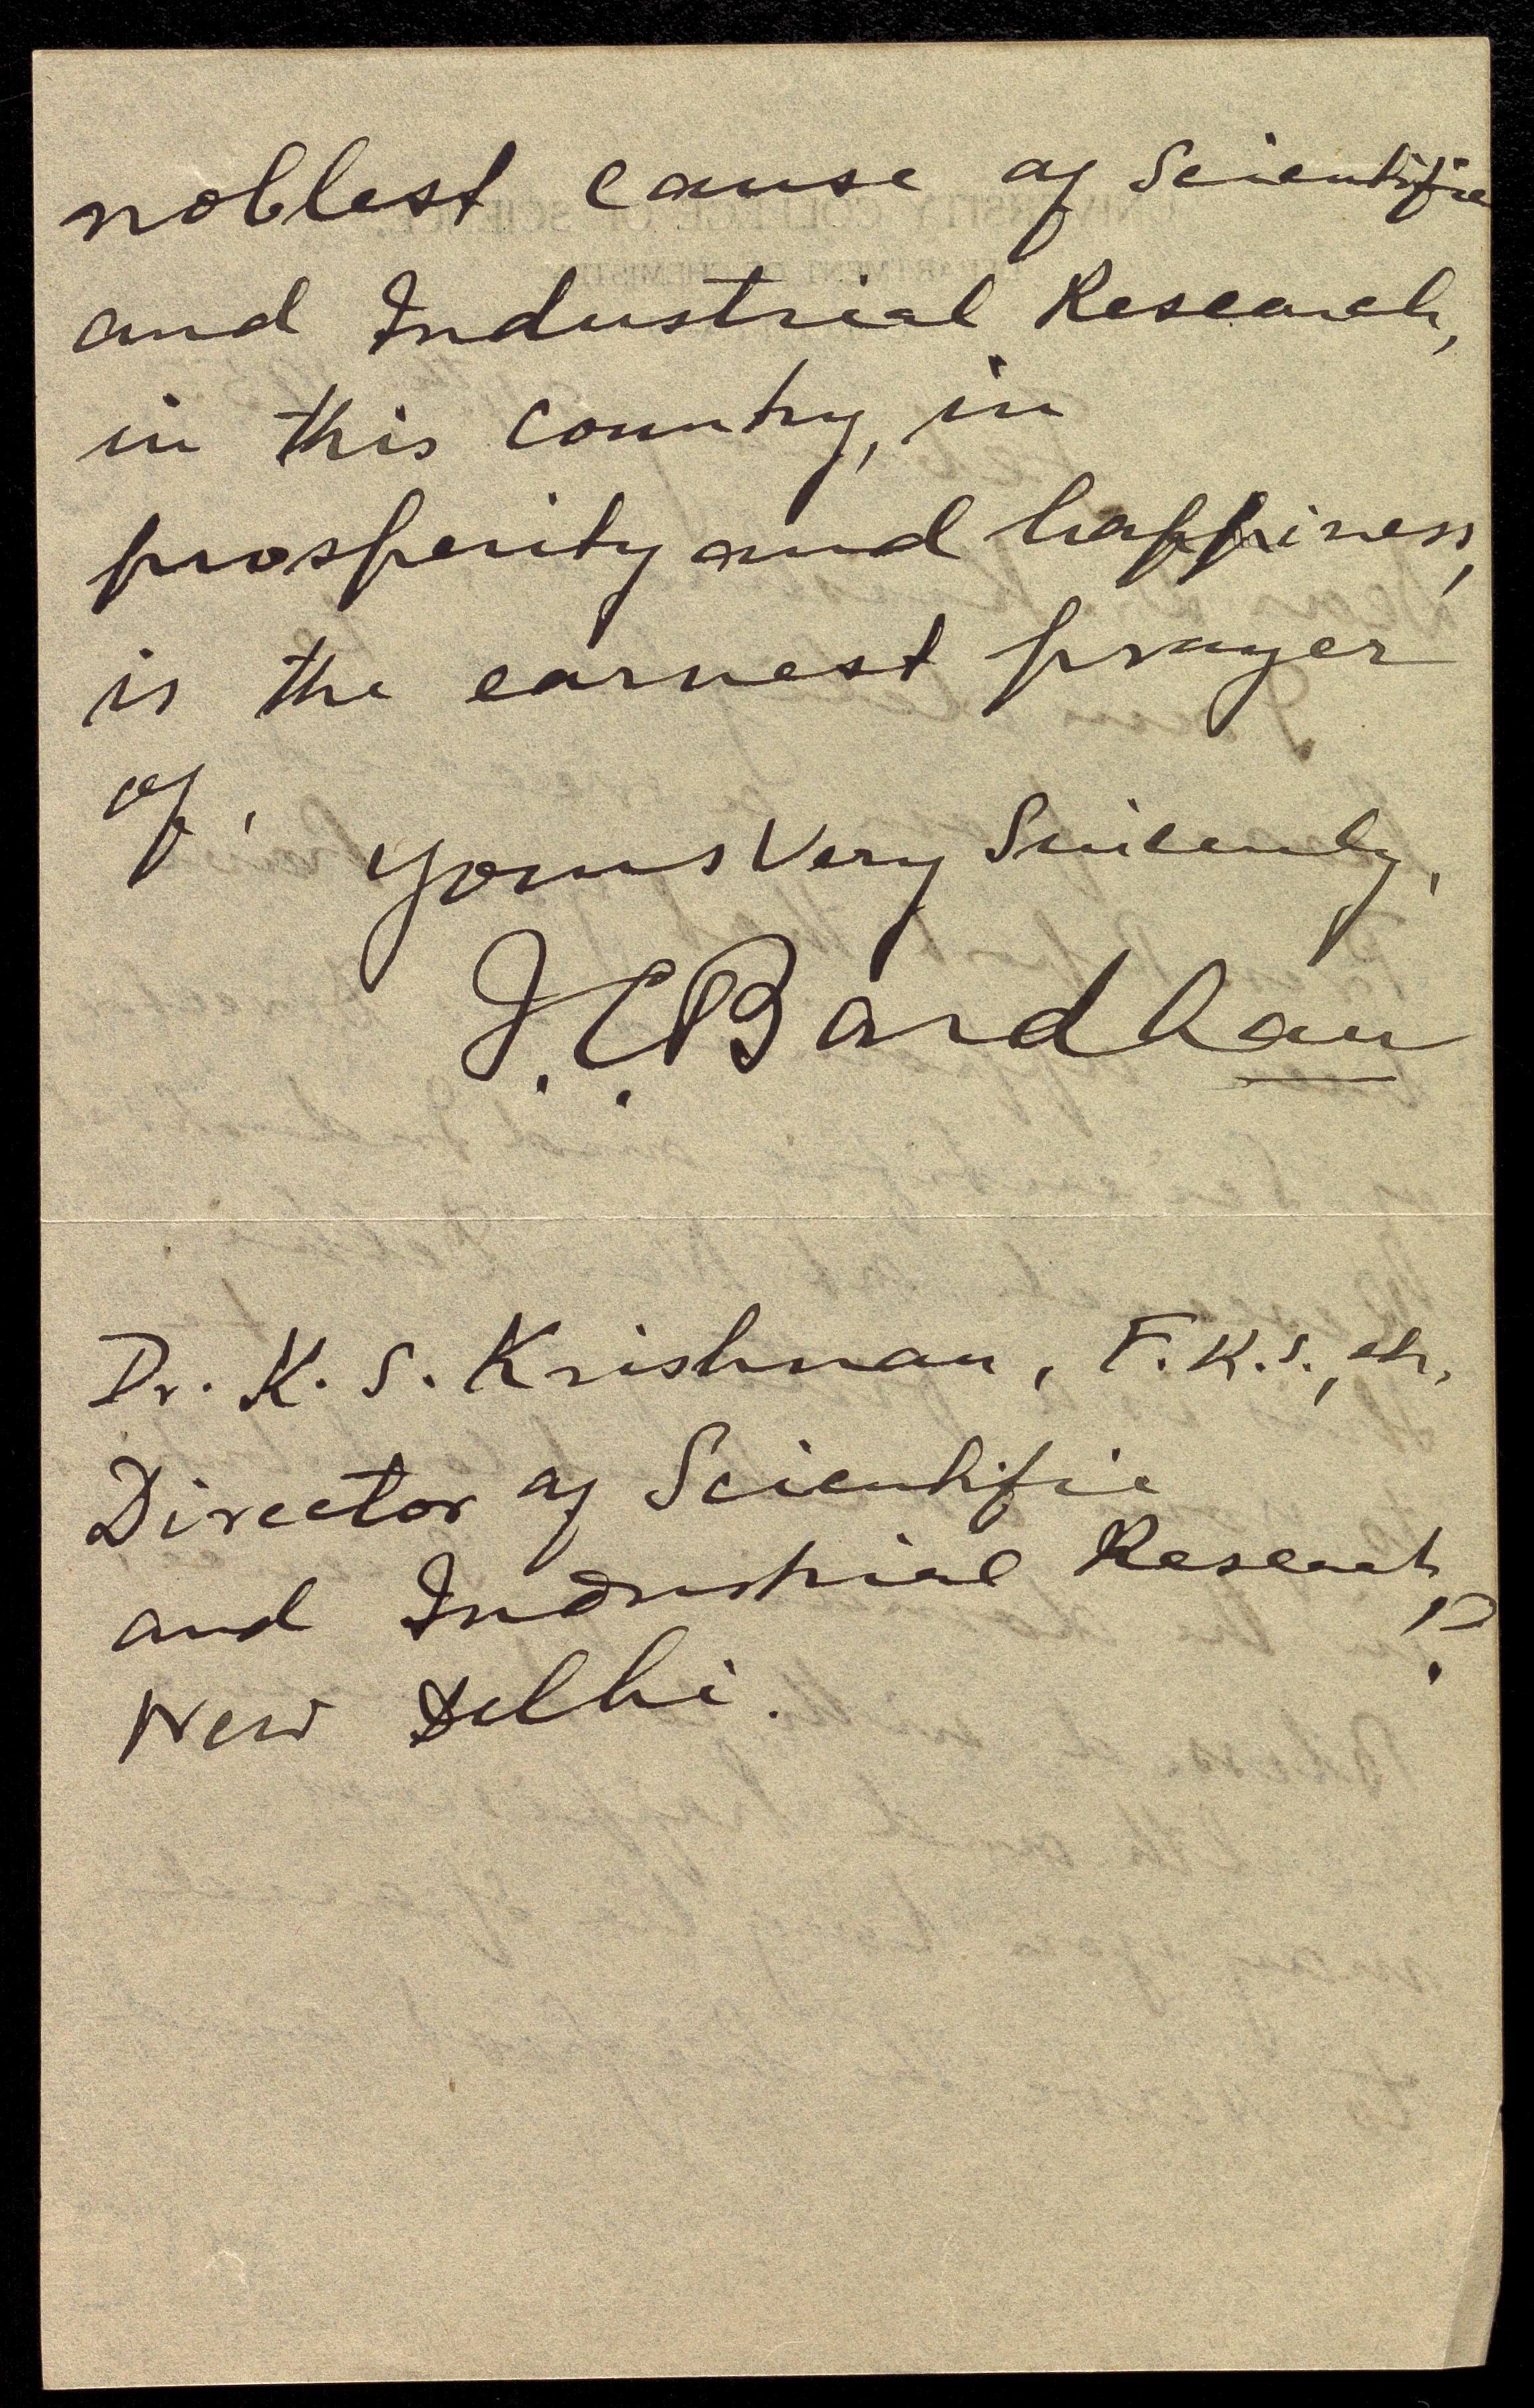 noblest cause of Scientific
and Industrial Research,
in this country, in
prosperity and happiness,
is the earnest prayer
of,
Yours Very Sincerely,
J. C. Bardhan
Dr. K. S. Krishnan, F.R.S., etc.
Director of Scientific
and Industrial Research,
New Delhi.
UNIVERSITY COLLEGE OF SCIENCE.
DEPARTMENT OF CHEMISTRY